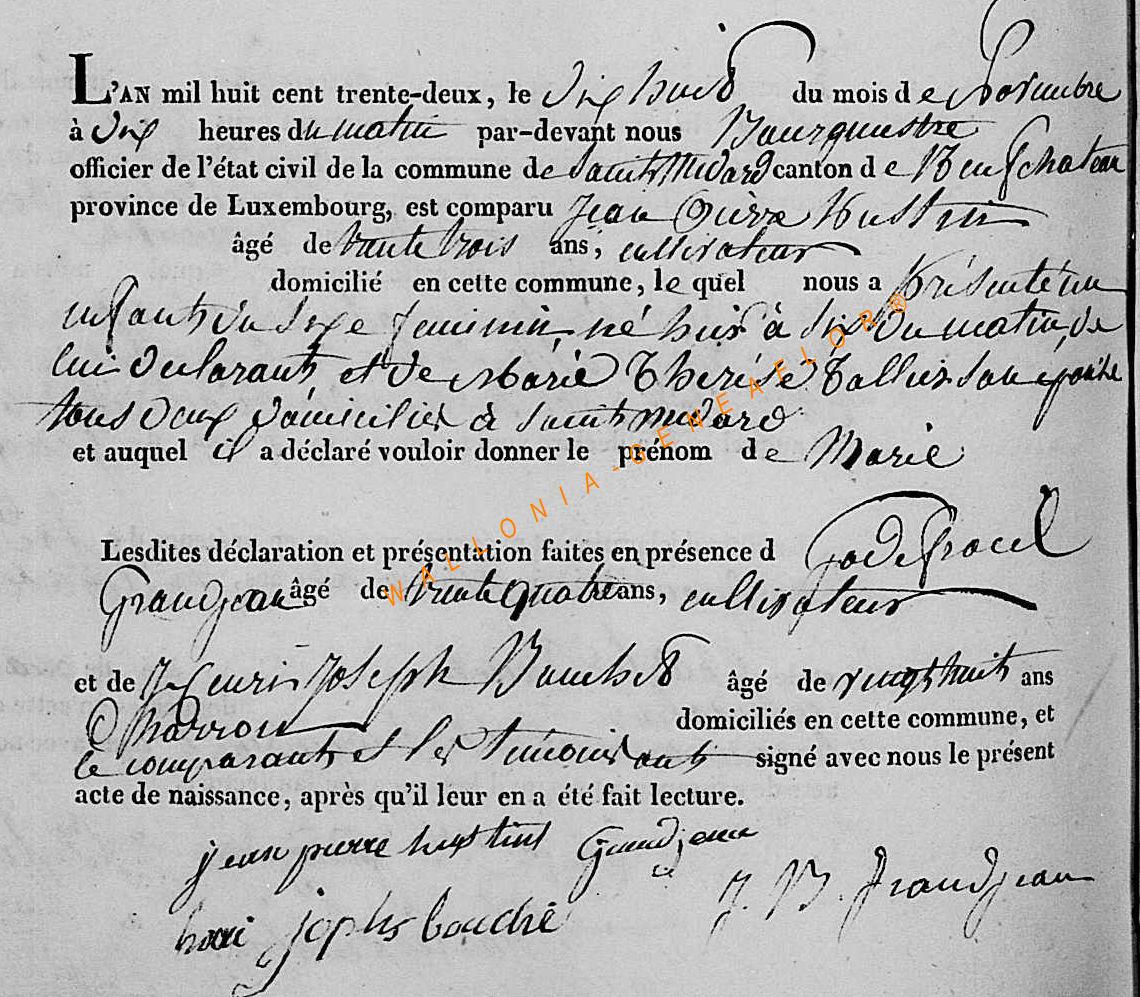 L'AN mil huit cent trente-deux, le dix huit du mois de Novembre
à dix heures du matin par-devant nous Bourgmestre
officier de l'état civil de la commune de Saint Médard canton de Neufchateau
province de Luxembourg, est comparu Jean Pierre Hustin
âgé de trente trois ans, cultivateur
domicilié en cette commune, lequel nous a présenté un
enfant du sexe feminin, né hier à six du matin, de
lui declarant, et de Marie Therése son épouse
tous deux domiciliés à Saint Medard
et auquel il a déclaré vouloir donner le prénom de Marie
Lesdites déclaration et présentation faites en présence d Godefroid
Grandjean âgé de trente quatre ans, cultivateur
et de Henri Joseph âgé de vingt huit ans
Charron domiciliés en cette commune, et
le comparant et les témoins ont signé avec nous le présent
acte de naissance, après qu'il leur en a été fait lecture.
jean pierre hustint Grandjean
J. B. Grandjean
henri joseph boudré
WALLONIA-GENEAFLOR®